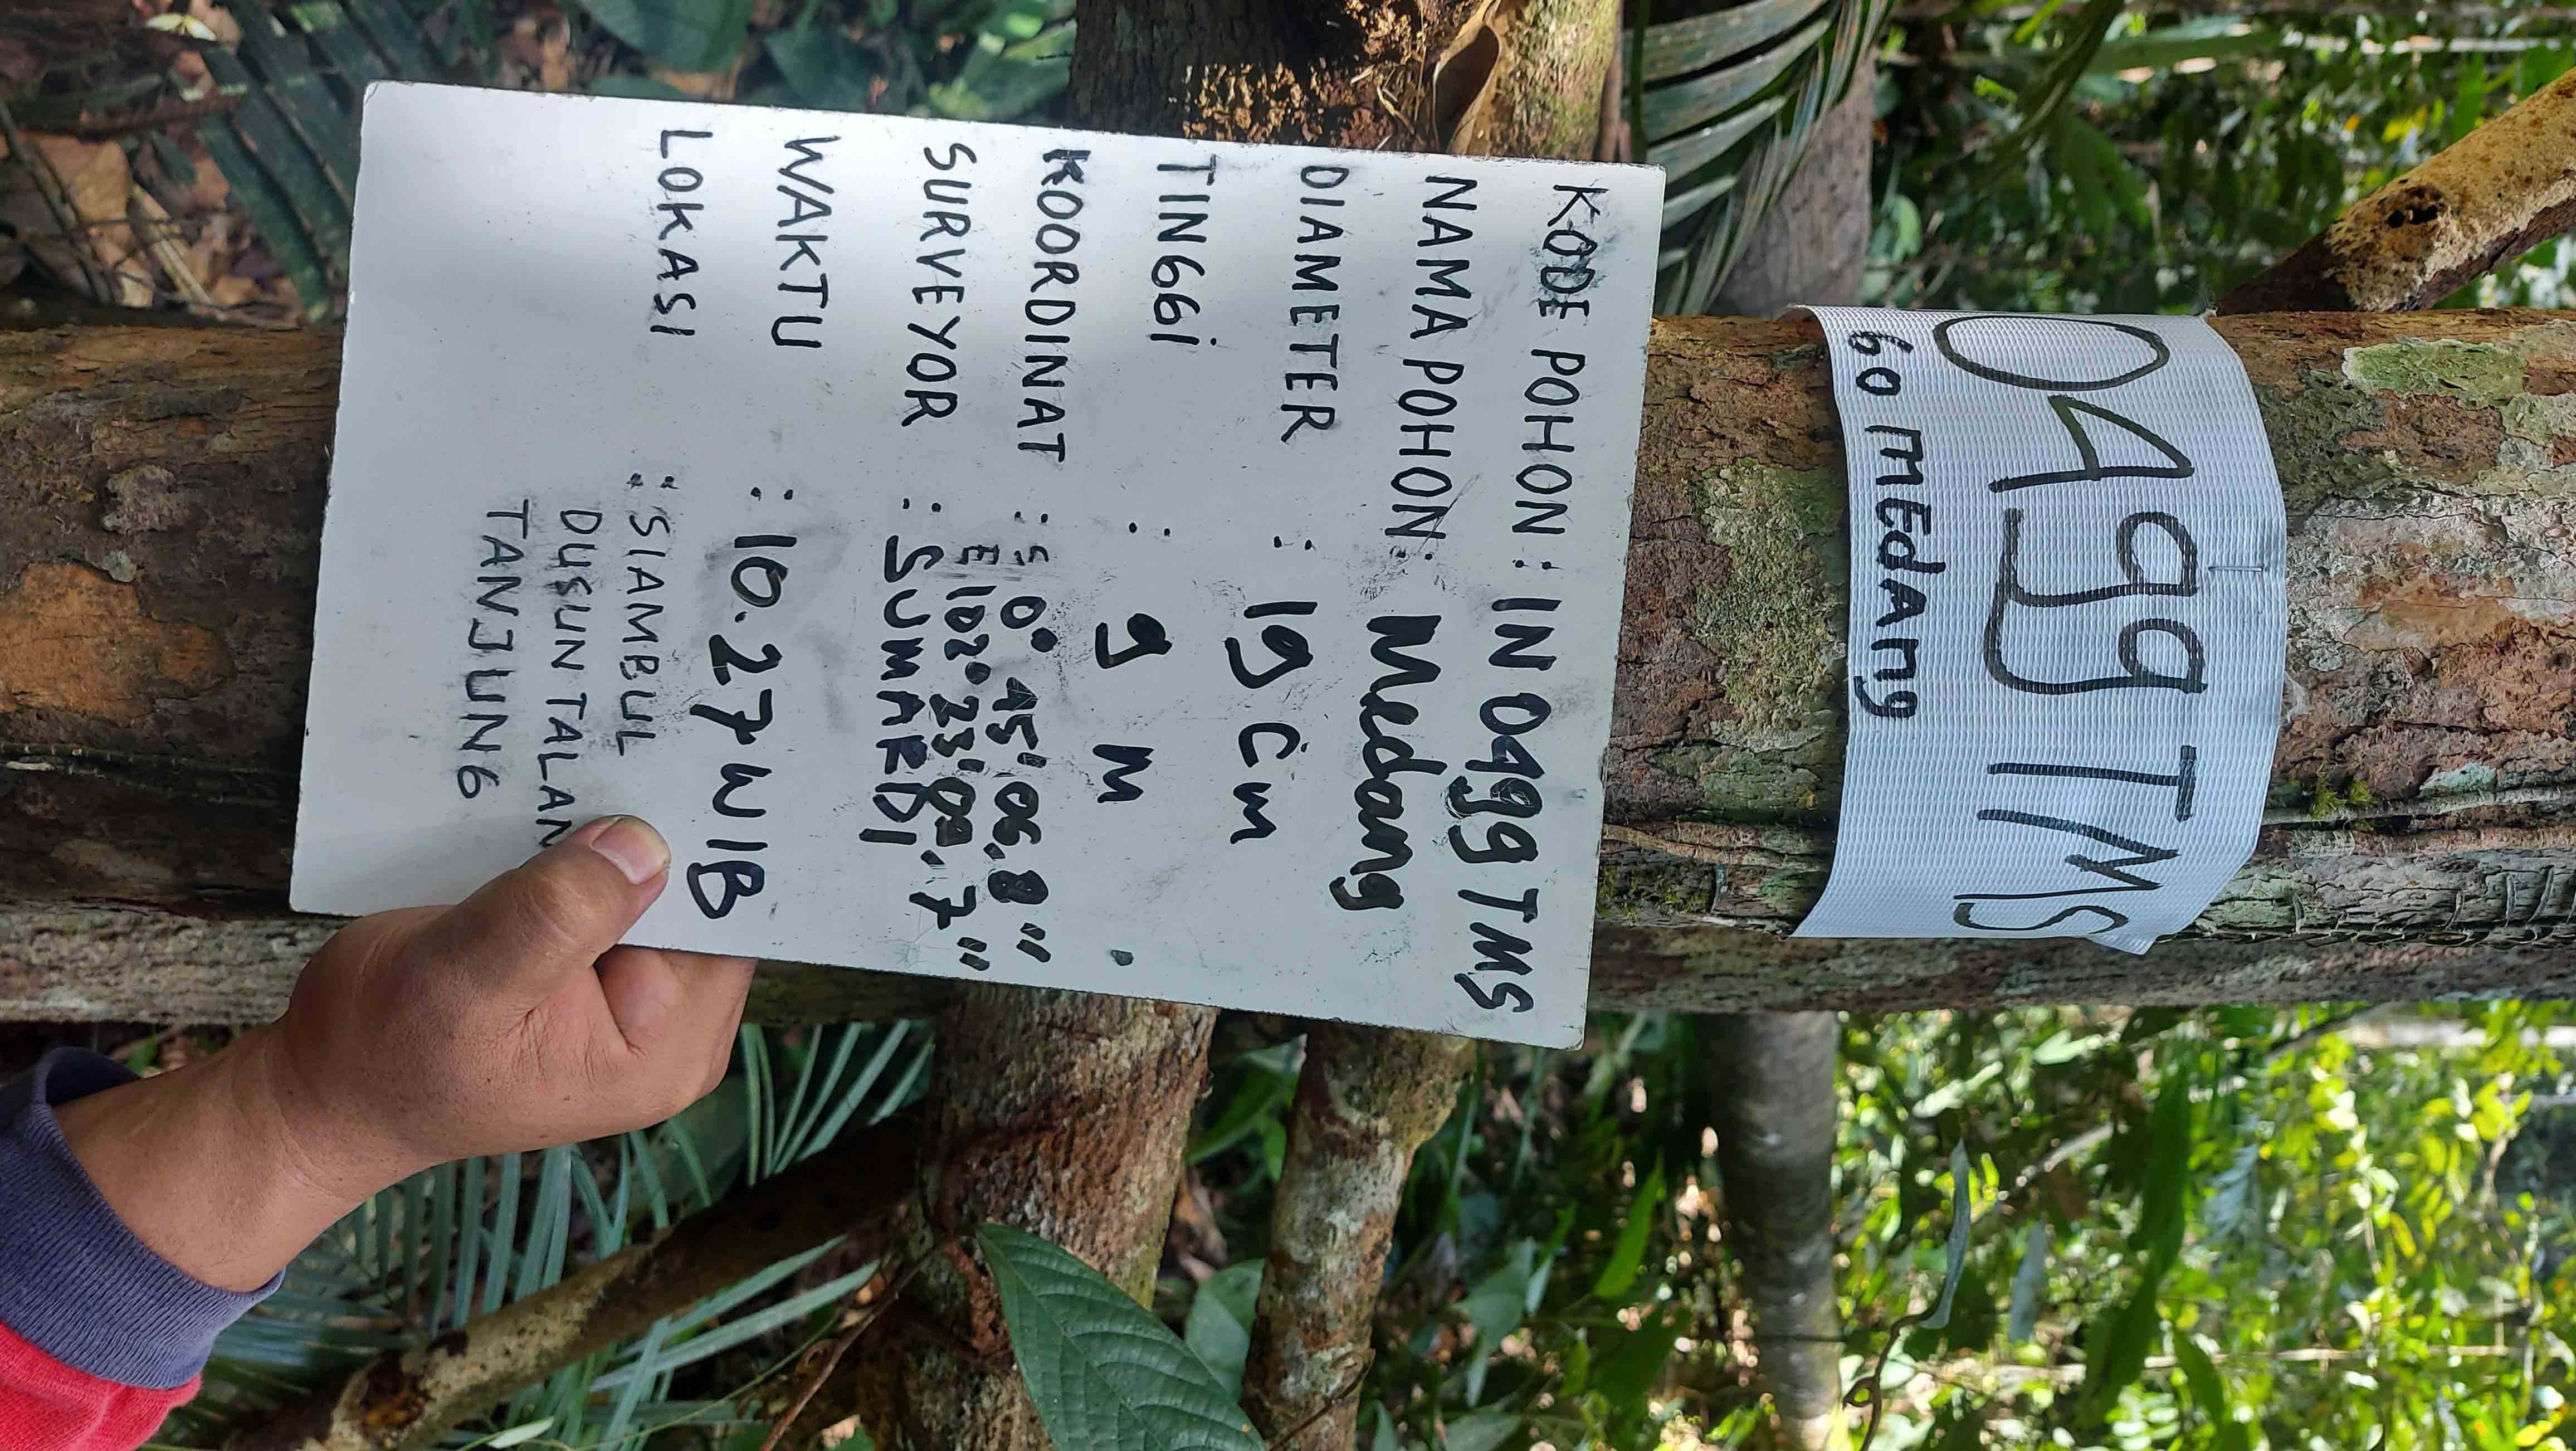 0499 TMS
60 MEdAng
KODE POHON : IN 0499 TMS
NAMA POHON : Medang
DIAMETER : 19 Cm
TINGGi : 9 M
KOORDINAT : S 0° 45' 06.8"
E 102° 23' 09.7"
SURVEYOR : SUMARDi
WAKTU : 10.27 WIB
LOKASI : SIAMBUL
DUSUN TALAN
TANJUNG